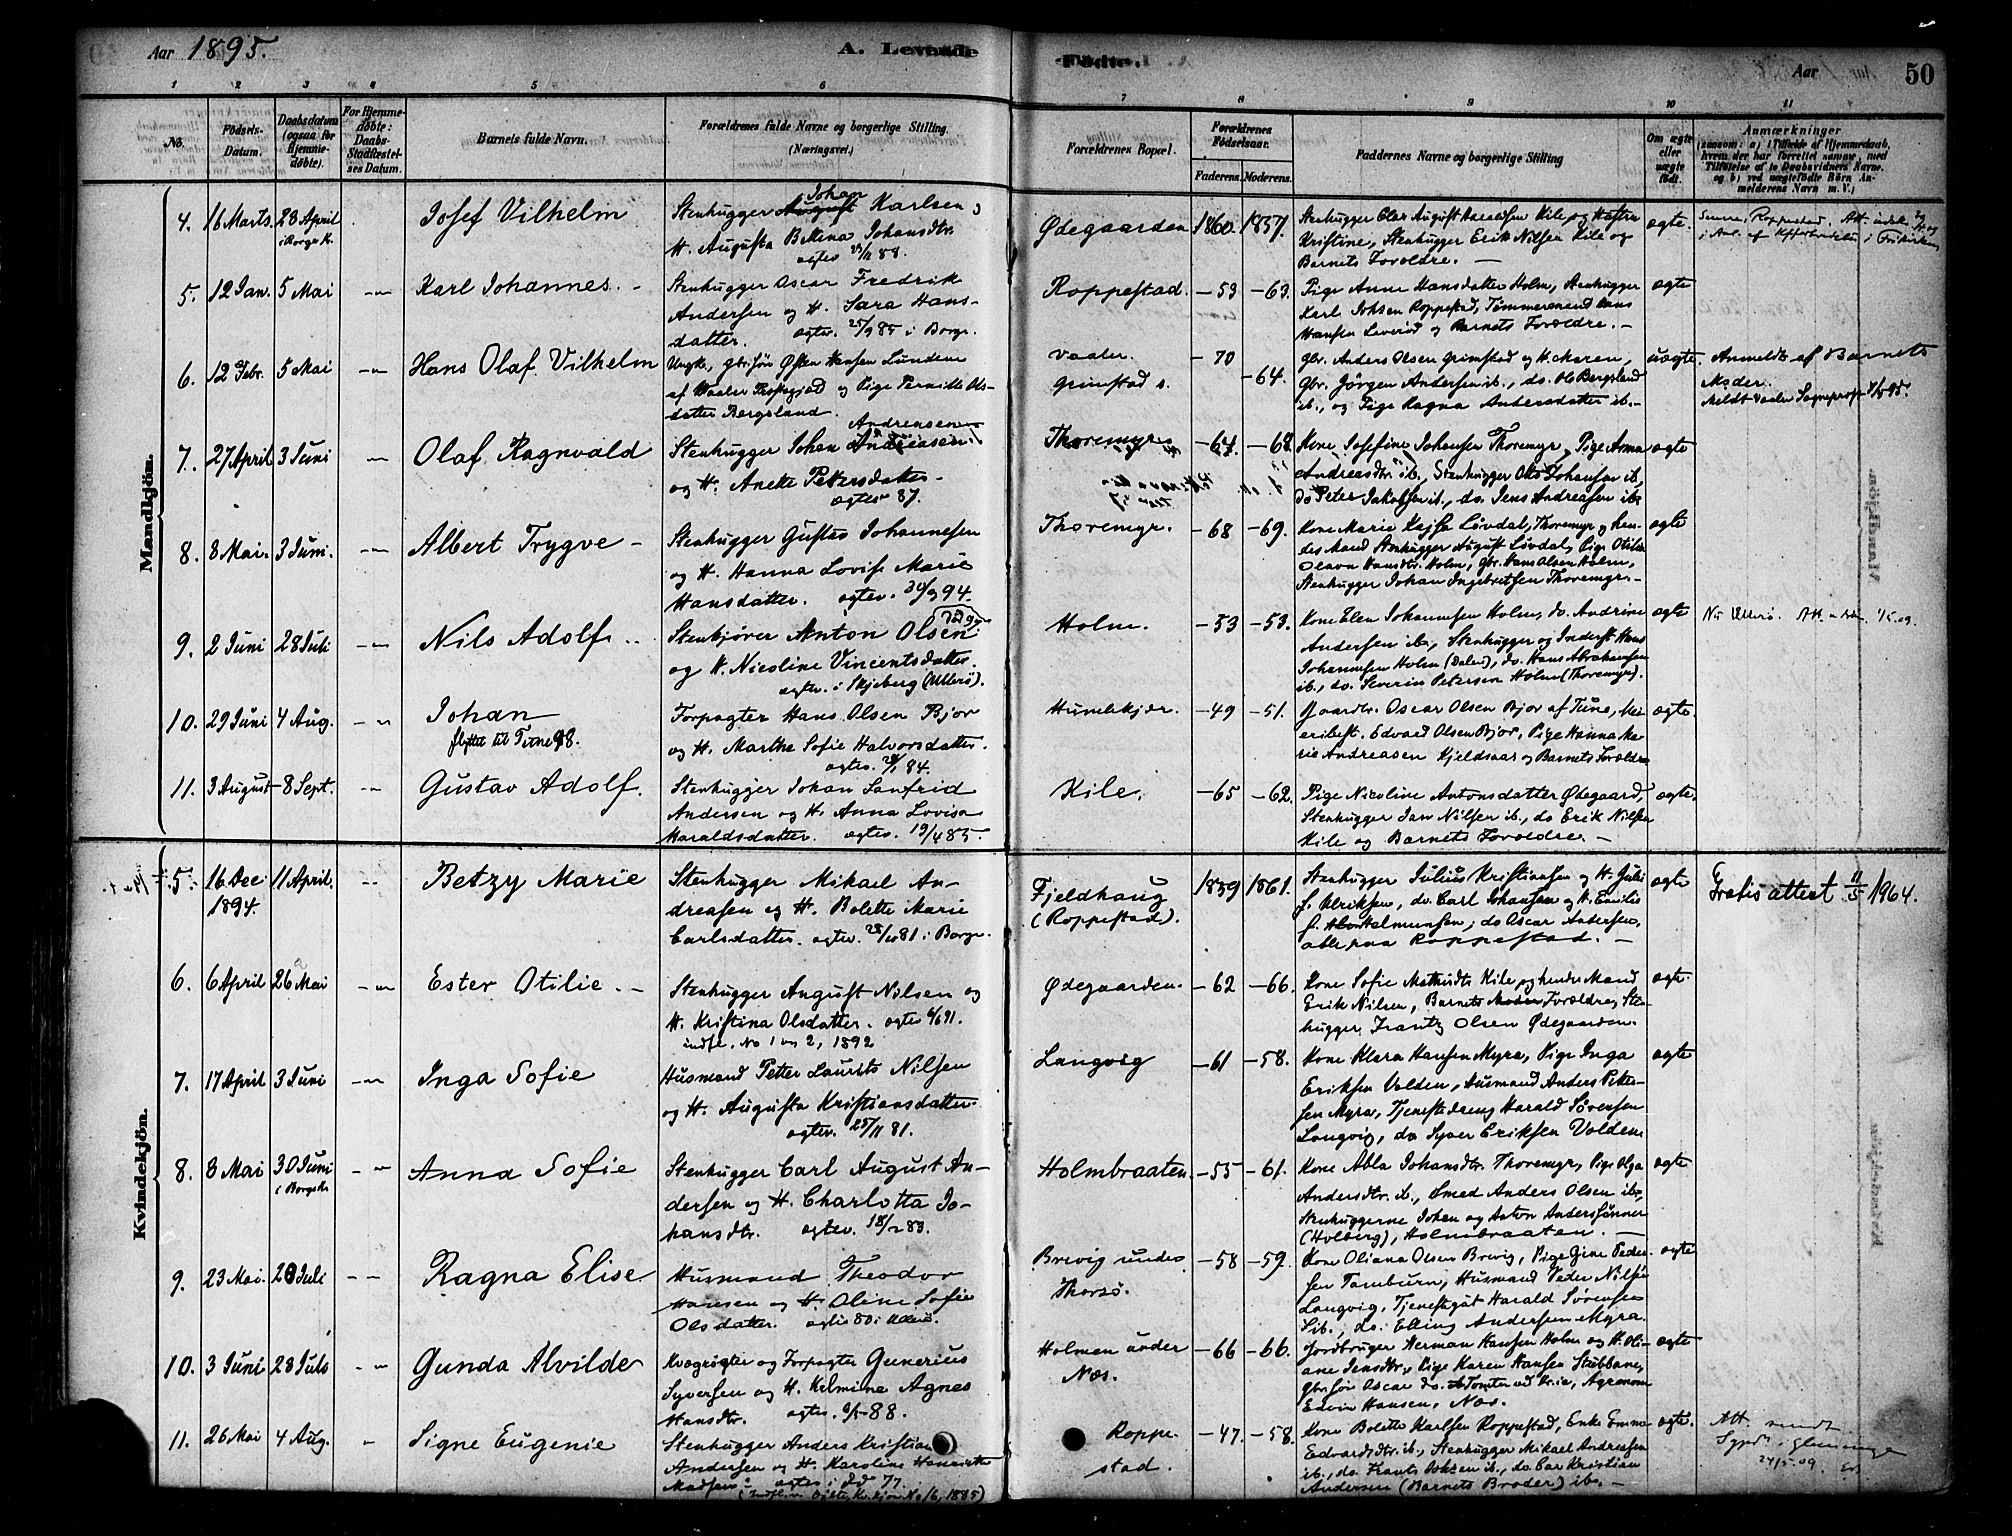 Aar 1895.
A. Levende
Fødte.
Aar
50
1 2 3 4 5 6 7 8 9 10 11
No.
Fødsels-Datum.
Daabsdatum (ogsaa for Hjemmedøbte).
For Hjemmedøbte: Daabs-Stadfæstelses Datum.
Barnets fulde Navn.
Forældrenes fulde Navne og borgerlige Stilling. (Næringsvei.)
Forældrenes Bopæl.
Forældrenes Fødselsaar.
Faderens. Moderens.
Faddernes Navne og borgerlige Stilling
Om ægte eller uægte født.
Anmærkninger
Mandkjön.
4. 16 Marts. 28 April i Borge K. Josef Vilhelm
Stenhugger August Johan Karlsen
H. Augusta Bettina Johansdtr.
Ødegaarden 1860. 1857.
Kristine, Stenhugger Erik Nilsen Kile og
Barnets Forældre. —
ægte.
5. 12 Jan. 5 Mai -„- Karl Johannes. -
Stenhugger Oscar Fredrik
Andersen og H. Sara Hans-
datter. ægtev. 25/9 85 i Borge.
Roppestad. -53 -63.
Pige Anne Hansdatter Holm, Stenhugger
Karl Johsen Roppestad, Tømmermand Hans
Hansen Leveröd og Barnets Forældre. —
ægte
6. 12 Febr. 5 Mai -„- Hans Olaf Vilhelm
Ungk., gbr.søn Østen Hansen Lundene
af Vaaler Præstegjæld og Pige Pernille Ols-
datter Bergsland.
Vaaler.
Grimstad s.
-70 -64.
gbr. Anders Olsen Grimstad og H. Maren,
gbr. Jörgen Andersen ib., do. Ole Bergsland
ib., og Pige Ragna Andersdatter ib.-
uægte.
Anmeldt af Barnets
Moder.
7. 27 April 3 Juni -„- Olaf Ragnvald
Stenhugger Johan Andreasen
og H. Anette Petersdatter.
ægtev 87.
Thoremyr -64. -68
Kone Josefine Johansen Thoremyr, Pige Anna
Andreasdtr. ib., Stenhugger Otto Johansen ib,
do Peter Jakobsen ib., do. Jens Andreasen ib.
ægte
8. 8 Mai. 3 Juni. -„- Albert Trygve -
Stenhugger Gustav Johannesen
og H. Hanna Lovise Marie
Hansdatter. ægtev. 30/9 94.
Thoremyr. -68 -69.
Kone Marie Kajsa Lövdal, Thoremyr og hen-
des Mand Stenhugger August Lövdal, Pige Otilie
Olava Hansdtr. Holm, gbr. Hans Olsen Holm,
Stenhugger Johan Ingebretsen Thoremyr.-
ægte
9. 2 Juni 28 Juli -„- Nils Adolf. ..
Stenkjörer Anton Olsen
og H. Nicoline Vincentsdatter.
ægtev. i Skjeberg (Ullerö).
Holm. -53 -53.
Kone Elen Johannesen Holm, do. Andrine
Andersen ib., Stenhugger og Inderst Hans
Johannesen Holm (Dalen), do. Hans Abrahamsen
ib., do. Severin Petersen Holm (Thoremyr).
ægte
10. 29 Juni 4 Aug. -„- Johan
flyttet til Tune 98.
Forpagter Hans Olsen Bjor
og H. Marthe Sofie Halvorsdatter.
Humlekjær. -49 -51.
Gaardbr. Oscar Olsen Bjor af Tune, Mei-
eribest. Edvard Olsen Bjor, Pige Hanna Ma-
rie Andreasen Kjeldsaas og Barnets Forældre
ægte.
11. 3 August 8 Sept. -„- Gustav Adolf.
Stenhugger Johan Sanfrid
Andersen og H. Anna Lovisa
Haraldsdatter. ægtev. 19/4 85.
Kile. -65 -62.
Pige Nicoline Antonsdatter Ødegaard,
Stenhugger Jan Nilsen ib., do Erik Nilsen
Kile og Barnets Forældre. —
ægte.
Kvindekjön.
5. 16 Dec. 1894. 11 April. -„- Betzy Marie
Stenhugger Mikael An-
dreasen og H. Bolette Marie
Carlsdatter. ægtev. 25/11 81 i Borge.
Fjeldhaug
(Roppestad).
1859 1861.
Stenhugger Julius Kristiansen og H. Juli
f. Ulriksen, do. Carl Johansen og H. Emilie
f. Helmunsen, do Oscar Andersen,
alle paa Roppestad. —
ægte
Gratis attest 11/5 1964.
6. 6 April 26 Mai -„- Ester Otilie. -
Stenhugger August Nilsen og
H. Kristina Olsdatter. ægtev 6/6 91.
indf. No 1 og 2, 1892
Ødegaarden. -62 -66.
Kone Sofie Mathisdtr Kile og hendes Mand
Erik Nilsen, Barnets Forældre, Sten-
hugger Frantz Olsen Ødegaarden.
ægte.
7. 17 April 3 Juni -„- Inga Sofie
Husmand Petter Laurits Nilsen
og H. Augusta Kristiansdatter.
ægtev. 25/11 81.
Langvig -61 -58.
Kone Klara Hansen Myra, Pige Inga
Eriksen Volden, Husmand Anders Peter-
sen Myra, Tjenestedreng Harald Sörensen
Langvig, do Syver Eriksen Volden
ægte
8. 8 Mai 30 Juni i Borge K. -„- Anna Sofie
Stenhugger Carl August An-
dersen og H. Charlotta Jo-
hansdtr. ægtev. 18/2 83.
Holmbraaten. -55 -61.
Kone Abla Johansdtr. Thoremyr, Pige Olga
Andersdtr. ib., Smed Anders Olsen ib.,
Stenhuggerne Johan og Anton Anderssönner
(Holberg), Holmbraaten. —
ægte
9. 23 Mai. 28 Juli -„- Ragna Elise
Husmand Theodor
Hansen og H. Oline Sofie
Olsdatter. ægtev 80 i Ullerö.
Brevig under
Thorsö.
-58 -59.
Kone Oliana Olsen Brevig, Pige Gine Peder-
sen Tamburn, Husmand Peder Nilsen
Langvig, Tjenestegut Harald Sörensen
ib., do. Elling Andersen Myra.
ægte
10. 3 Juni 28 Juli -„- Gunda Alvilde
Kvægrögter og Forpagter Gunerius
Syversen og H. Helmine Agnes
Hansdtr. ægtev. 6/5 88.
Holmen under
Næs.
-66 -66.
Jordbruger Herman Hansen Holm og H. Oli-
ane Jensdtr., Pige Karen Hansen Stubbane,
gbr.søn Oscar do. Tomter ved Kria, Agronom
Edvin Hansen, Næs.
ægte
11. 26 Mai 4 Aug. „ Signe Eugenie
Stenhugger Anders Kristian
Andersen og H. Karoline Henriette
Madsen. ægtev. i Id 77.
No 16, 1885)
Roppe-
stad.
-47. -58.
Kone Bolette Karlsen Roppestad, Enke Emma
Edvardsdtr. ib., Stenhugger Mikael Andreasen
ib., do. Frants Johsen ib., do. Carl Kristian
Andersen (Barnets Broder) ib. —
ægte.
Att. sendt
24/5.09.